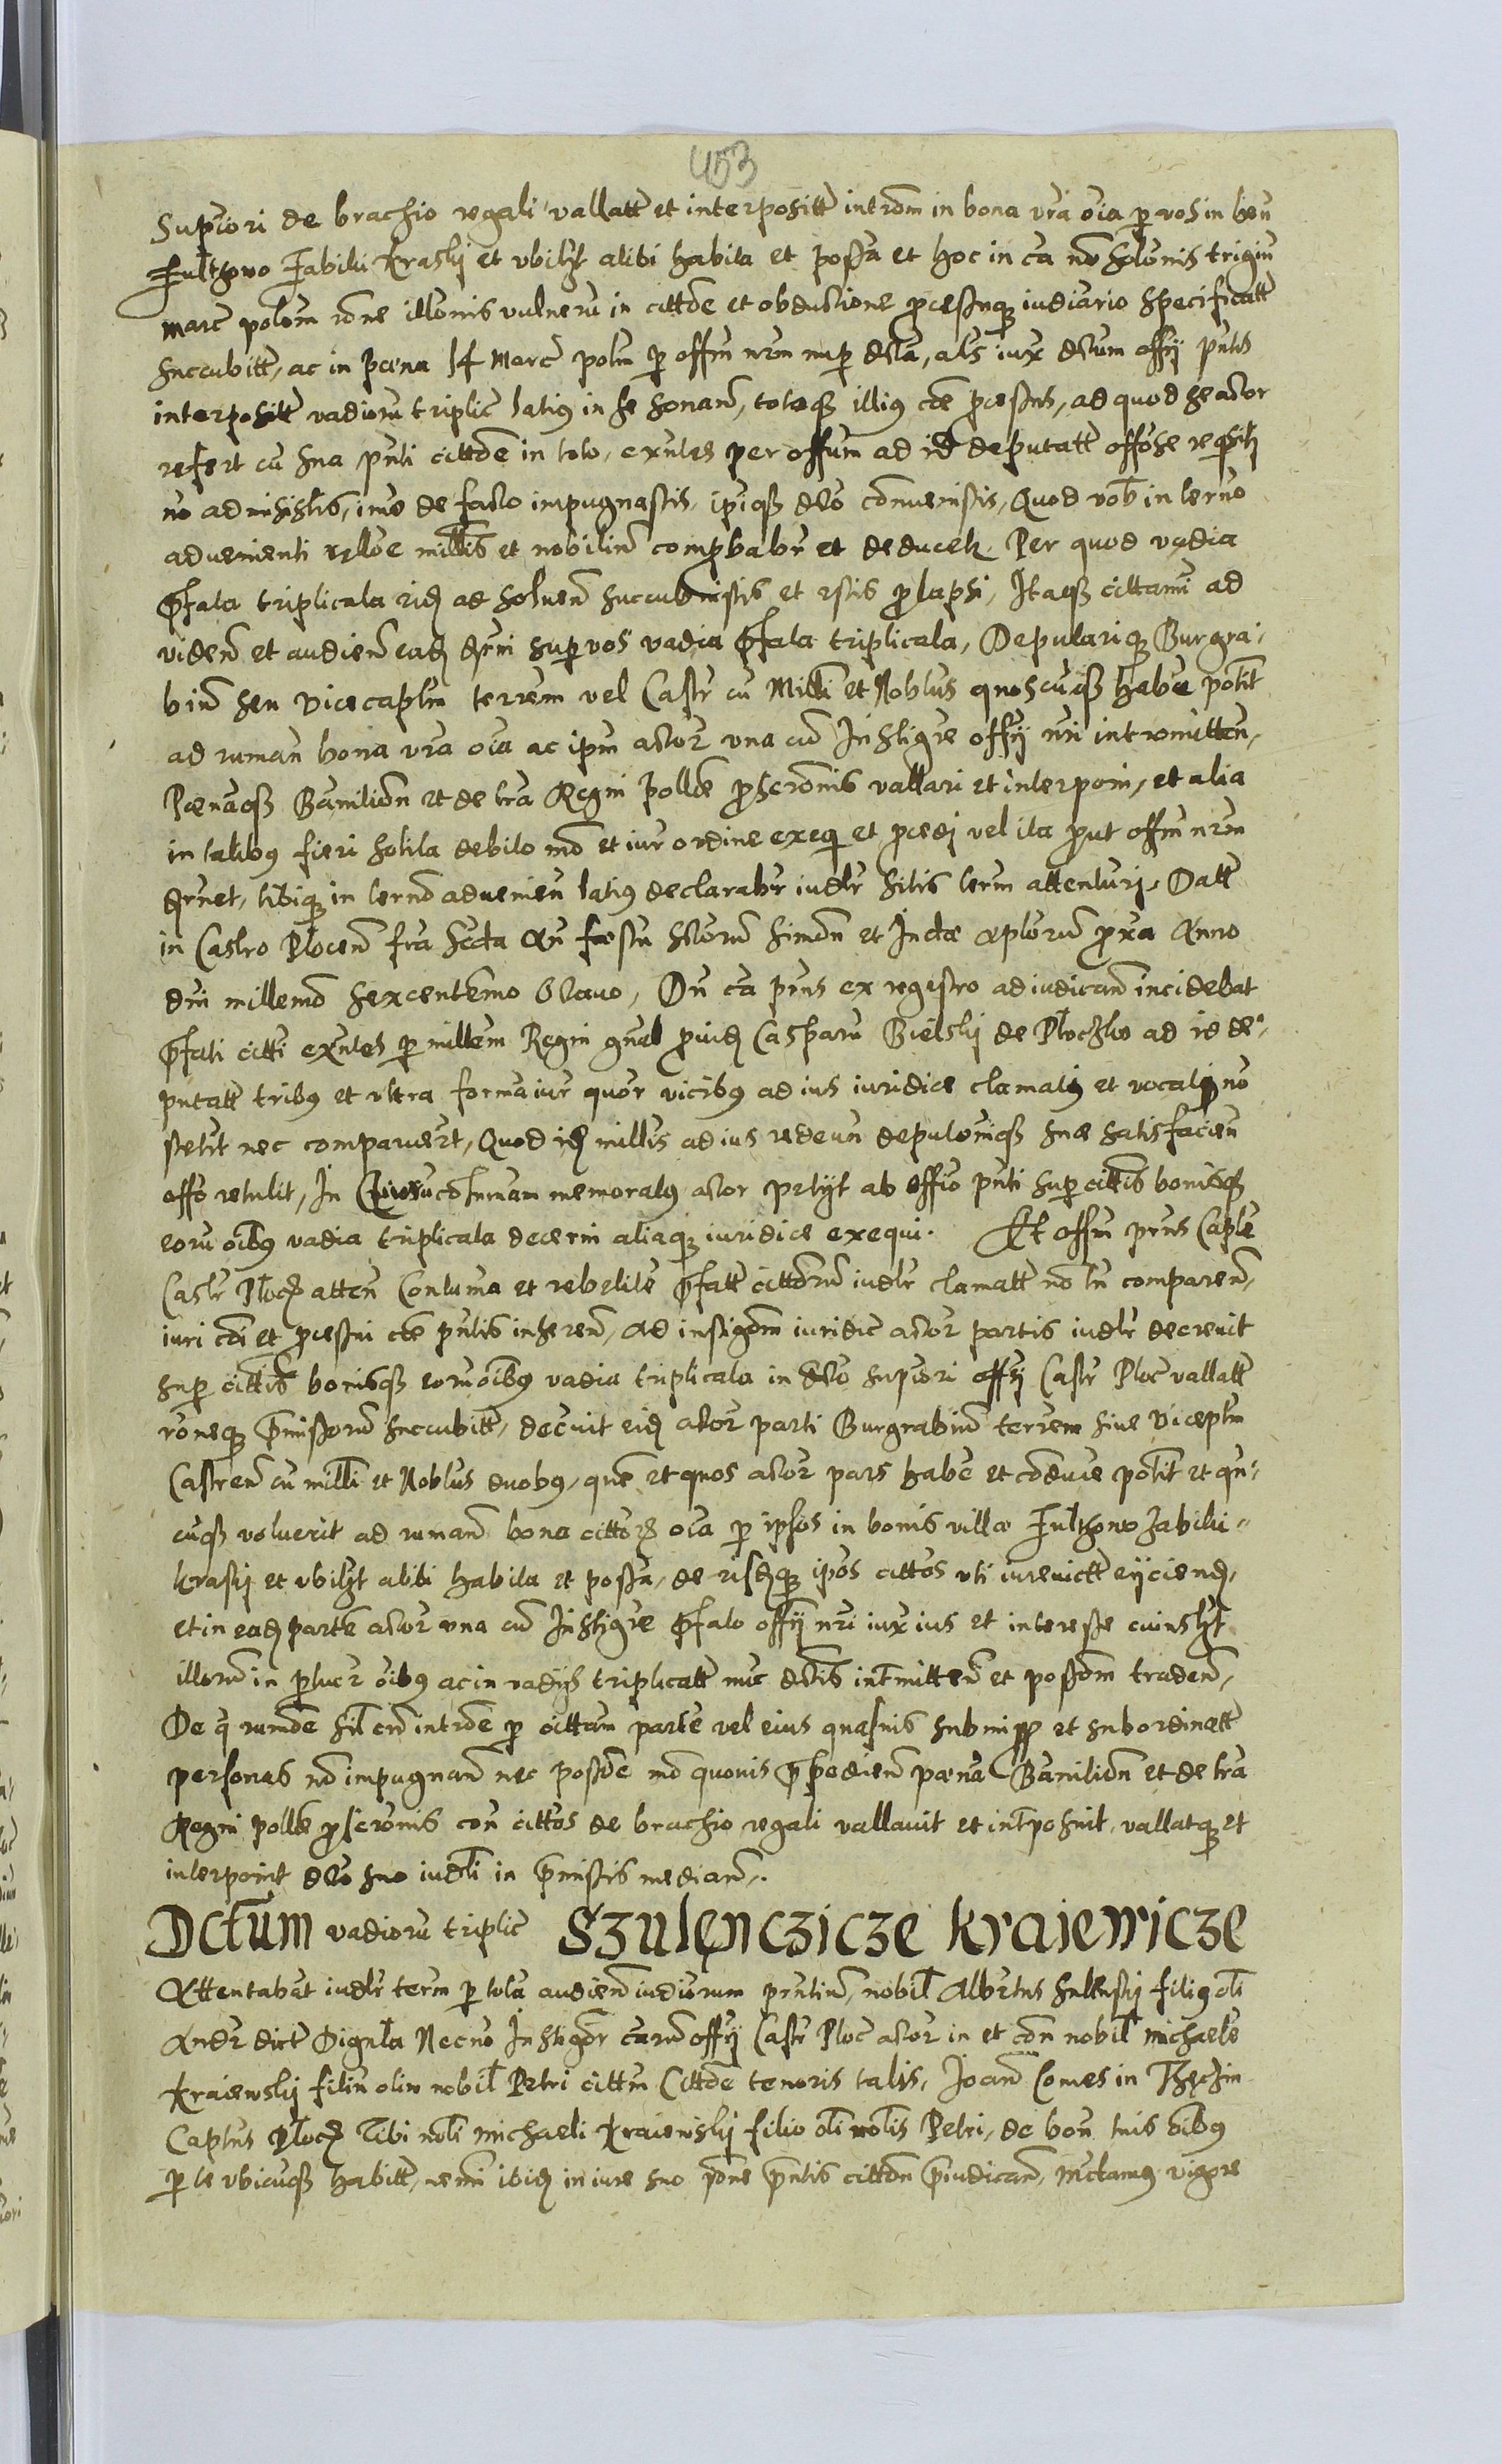 453
Supiori de brachio regali vallatt et interpositt introm in bona vra oia p vos in bon
Fulkowo Jabilii Kraski et vbilyt alibi habita et possa et hoc in ca no solonis trigin
marc polom rone illonis vulneru in cittoe et obductione pcessuq iudiario specificatt
succubitt, ac in pœna 14 Marc polm p offm nrm nup dcta, als iux dctum offij pntis
interpositt vadioru triplic latius in se sonan, totoq illius coe pcessus, ad quod se actor
refert cu sua pnti cittoe in toto, exntes per offum ad id deputatt offose reqsiti
no admisistis, imo de facto impugnastis, ipiq dco convenistis, Quod vob in terno
advenienti rlloe millis et nobilium comprobabr et deducetr. Per quod vadia
pfata triplicata eid ac soluen succubuistis et estis plapsi, Itaq cittami ad
viden et audien ead dcrni sup vos vadia pfata triplicata, Deputariq Burgra-
bium seu vicecaptm terrem vel Castr cu Milli et Noblus quoscuq habere potit
ad ruman bona vra oia ac ipm actor vna cu Instigre offij nri intromitten,
Pœnaq Banition et de tra Regni pollæ pscronis vallari et interponi, et alia
in talibus fieri solita debito mo et iur ordine exeq et pcedi vel ita put offm nrm
dcrnet, tibiq in terno advenien latius declarabr iudlr sitis term attenturi. Datt
in Castro Plocen fria scda an festu sctoru Simon et Judæ aplorum pxa Anno
dni millemo sexcentemo octavo, Dn ca pns ex regestro ad iudican incidebat
pfati citti exntes p millem Regni gnal pvid Casparu Bielski de Plochlo ad id de-
putatt tribus et vltra forma iur quor vicibus ad ius iuridice clamati et vocati no
stetit nec comparuert, Quod id millis ad ius redeun deputoniq suæ satisfacien
offo retulit, In Quoru contuman memoratus actor petyt ab offio pnti sup cittis bonisq
eoru oibus vadia triplicata decerni aliaq iuridice exequi. Et offm pns Caple
Castr Ploc atten Contuma et rebelite pfatt cittorum iudlr clamatt no tn comparen,
iuri coi et pcessui coe pntis inheren, ad instigom iuridic actor partis iudlr decrevit
sup cittis bonisq eorum oibus vadia triplicata in dcto supiori offij Castr Ploc vallatt
roneq pmissorum succubitt, decrevit eid actor parti Burgrabium terrem sive vicepltm
Castren cu milli et Noblus duobus, que et quos actor pars habe et condvce potit et qn-
cuq voluerit ad ruman bona cittor oia p ipsos in bonis villæ Fulkowo Jabilii-
kraski et vbilyt alibi habita et possa, de eisdq ipos cittos vti iurevictt eijciend,
et in ead parte actor vna cu Instigre pfato offij nri iux ius et interesse cuiuslyt
illorum in plucr oibus ac in vadijs triplicatt nuc dctis intmitten et possom traden,
De q rumoe sil cu introe p cittam parte vel eius quasuis submiss et subordinatt
personas no impugnan nec possoe mo quovis ppedien pœna Banition et de tra
Regni pollæ pscronis con cittos de brachio regali vallavit et intposuit, vallatq et
interponit dcto suo iudli in pmissis median.
Dctum vadioru triplic Szulęnczicze Kraiewicze
Attentabat iudlr term p tota audien iudiorum prntium, nobil Albrtus Sulkuski filius oli
Andr dict Digula Necno Instigor curu offij Castr Ploc actor in et con nobil michaele
Kraiewski filiu olim nobil Petri cittm Cittoe tenoris talis, Joan Comes in Thęczin
Captus Ploc Tibi nobli michaeli Kraiewski filio oli nobilis Petri, de bon tuis oibus
p te vbicuq habitt, nemi ibid in iure suo rone pntis citton piudican, mctamus vigore